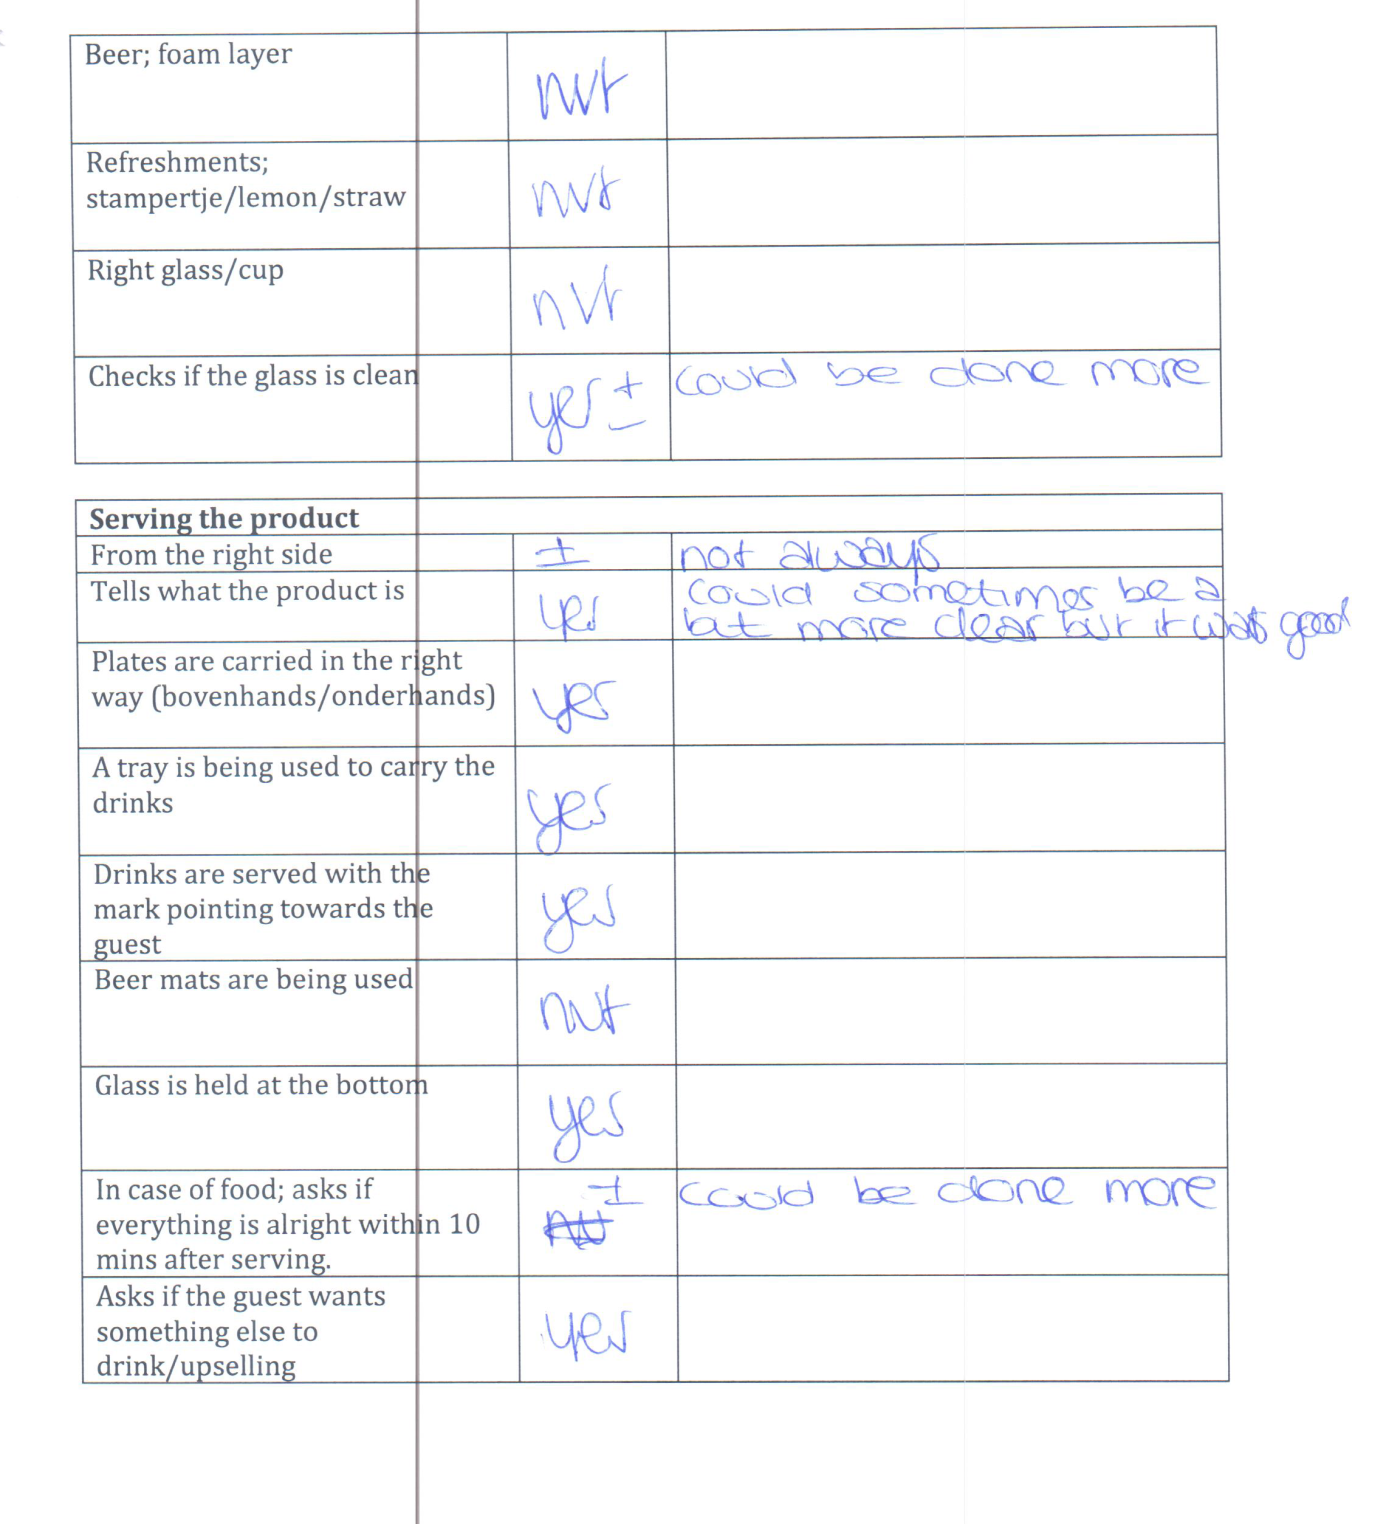 Beer; foam layer
nvt
Refreshments;
stampertje/lemon/straw
nvt
Right glass/cup
nvt
Checks if the glass is clean
yes ±
could be done more
Serving the product
From the right side
±
not always
Tells what the product is
yes
could sometimes be a
bat more clear but it was good
Plates are carried in the right
way (bovenhands/onderhands)
yes
A tray is being used to carry the
drinks
yes
Drinks are served with the
mark pointing towards the
guest
yes
Beer mats are being used
nvt
Glass is held at the bottom
yes
In case of food; asks if
everything is alright within 10
mins after serving.
±
could be done more
Asks if the guest wants
something else to
drink/upselling
yes